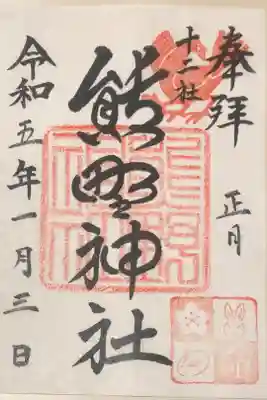 奉拝
正月
十二社
熊野神社
令和五年一月三日